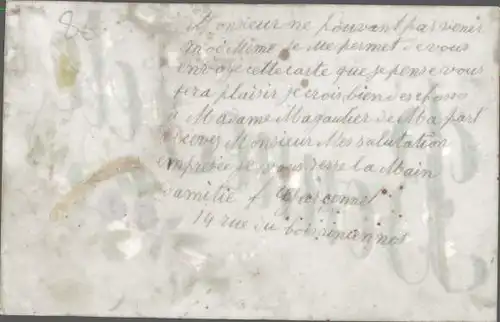 8
Monsieur ne pouvant pas venir
moi Même je me permet de vous
envoye cette carte que je pense vous
fera plaisir je crois bien
a Madame de Ma part
recevez Monsieur Mes salutation
empresée je vous serre la Main
damitié f
14 rue du bois vincennes